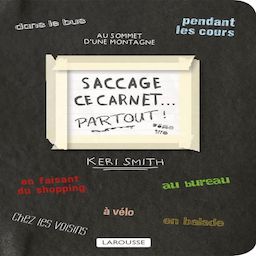 dans le bus
AU SOMMET
D'UNE MONTAGNE
pendant
les cours
SACCAGE
CE CARNET...
PARTOUT!
KERI SMITH
en faisant
du shopping
au bureau
Chez les voisins
à vélo
en balade
LAROUSSE